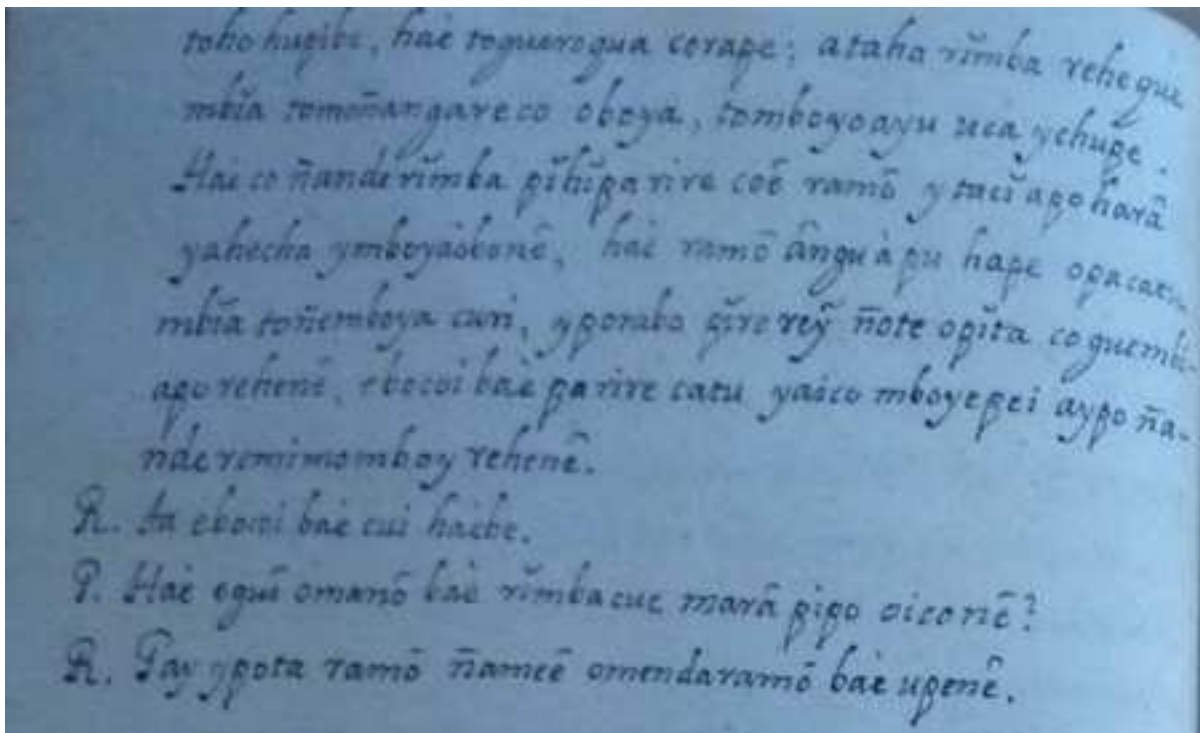 toho hupibe, haè toguerogua corape; ataha rĩmba rehegua
mbĩa tomoñangareco oboya, tomboyoayu uca ychupe.
Hae co ñande rĩmba pĩhĩparire coẽ ramõ y tacĩ apo harâ
yahecha ymboyaòbonê, haè ramõ ânguàpu hape opacatu
mbĩa toñemboya curi, yporabo pĩre reỹ ñote opĩta co guembi-
apo rehenê, ebocoi baè parire catu yaico mboyepei aypo ña-
nde remimomboy rehenê.
R. ta ebocoi baè cui haèbe.
P. Haè eguĩ omanõ baè rĩmbacue marâ pipo oiconê?
R. Pay ypota ramõ ñameê omendaramõ baè upenê.